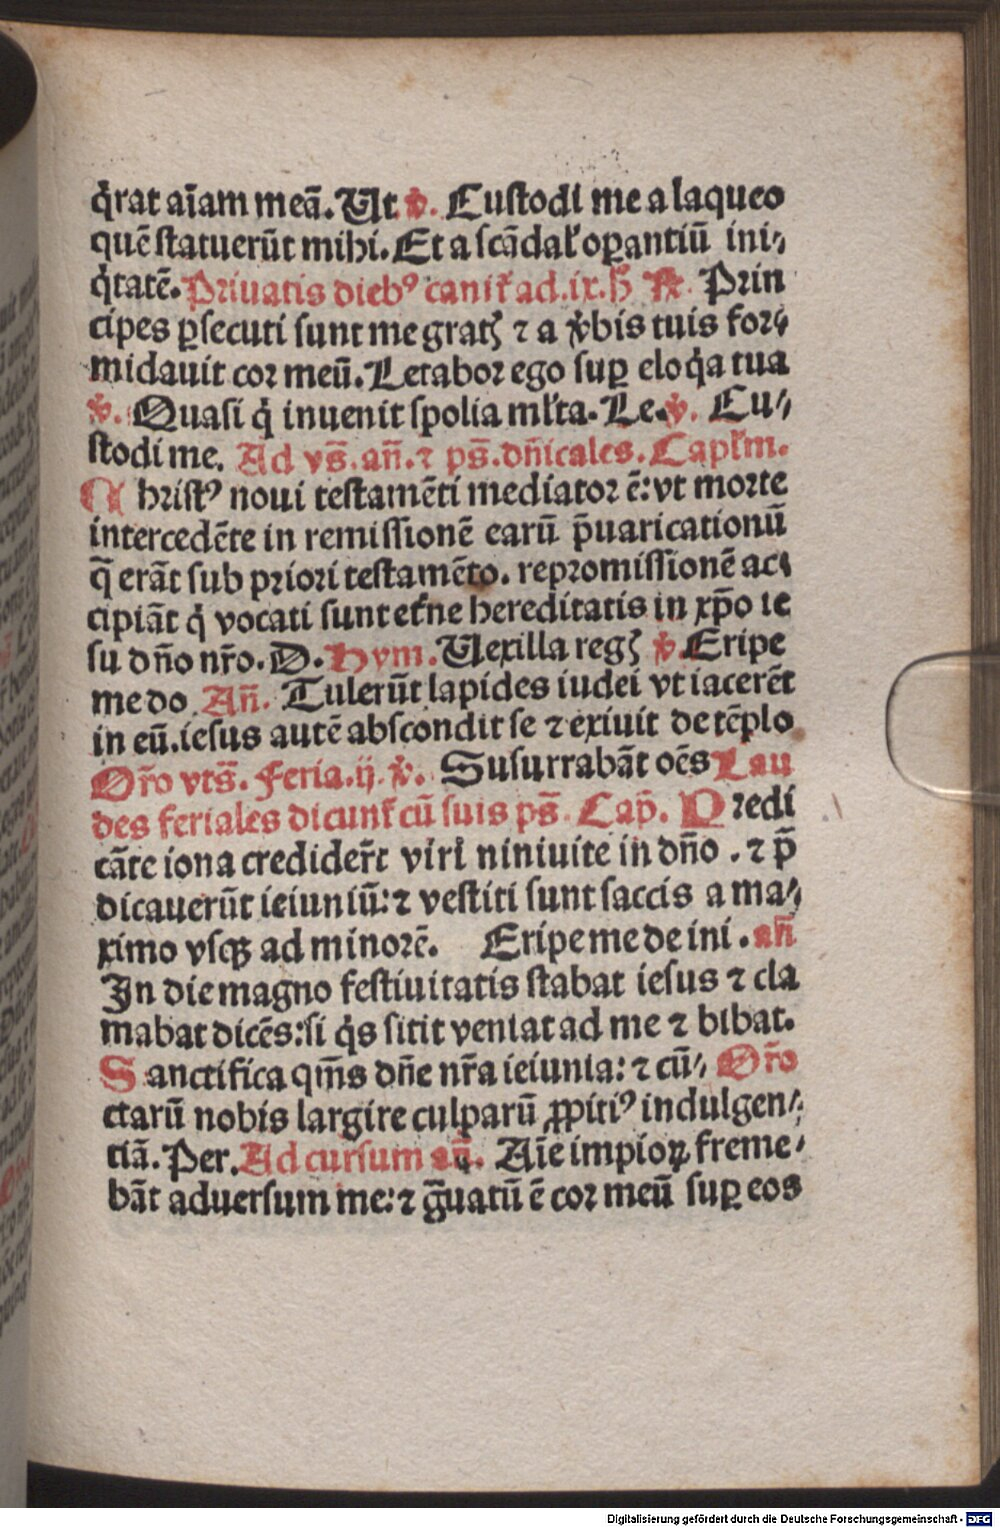 q̉rat aīam meā. Ut ꝟ. Custodi me a laqueo
quē statuerūt mihi. Et a scādal' oꝑantiū ini⸗
q̉tatē. Priuatis diebꝰ canit᷑ ad .ix. H R̷. Prin
cipes ꝑsecuti sunt me gratꝭ ⁊ a ꝟbis tuis for⸗
midauit cor meū. Letabor ego suꝑ eloq̉a tua
ꝟ. Quasi q̉ inuenit spolia ml'ta. Le. ꝟ. Cu⸗
stodi me. Ad vs̄. an̄. ⁊ ps̄. dn̄icales. Capl'm.
Christꝰ noui testamēti mediator ē: vt morte
intercedēte in remissionē earū p̄uaricationū
q̄ erāt sub priori testamēto. repromissionē ac⸗
cipiāt q̉ vocati sunt et'ne hereditatis in xp̄o ie
su dn̄o nr̄o. D. Hym. Uexilla regꝭ ꝟ. Eripe
me do An̄. Tulerūt lapides iudei vt iacerēt
in eū. iesus autē abscondit se ⁊ exiuit de tēplo
Or̄o vts̄. Feria .ij. ꝟ. Susurrabāt oēs Lau
des feriales dicunt᷑ cū suis ps̄. Cap̄. Predi
cāte iona credider̄t viri niniuite in dn̄o . ⁊ p̄
dicauerūt ieiuniū: ⁊ vestiti sunt saccis a ma⸗
ximo vsqꝫ ad minorē. Eripe me de ini . an̄
In die magno festiuitatis stabat iesus ⁊ cla
mabat dicēs: si q̉s sitit veniat ad me ⁊ bibat.
Sanctifica qm̄s dn̄e nr̄a ieiunia: ⁊ cū⸗ Or̄o
ctarū nobis largire culparū ꝓpitiꝰ indulgen⸗
tiā. Per. Ad cursum an̄. Aīe impioꝝ freme⸗
bāt aduersum me: ⁊ g̃uatū ē cor meū suꝑ eos
Digitalisierung gefördert durch die Deutsche Forschungsgemeinschaft - DFG